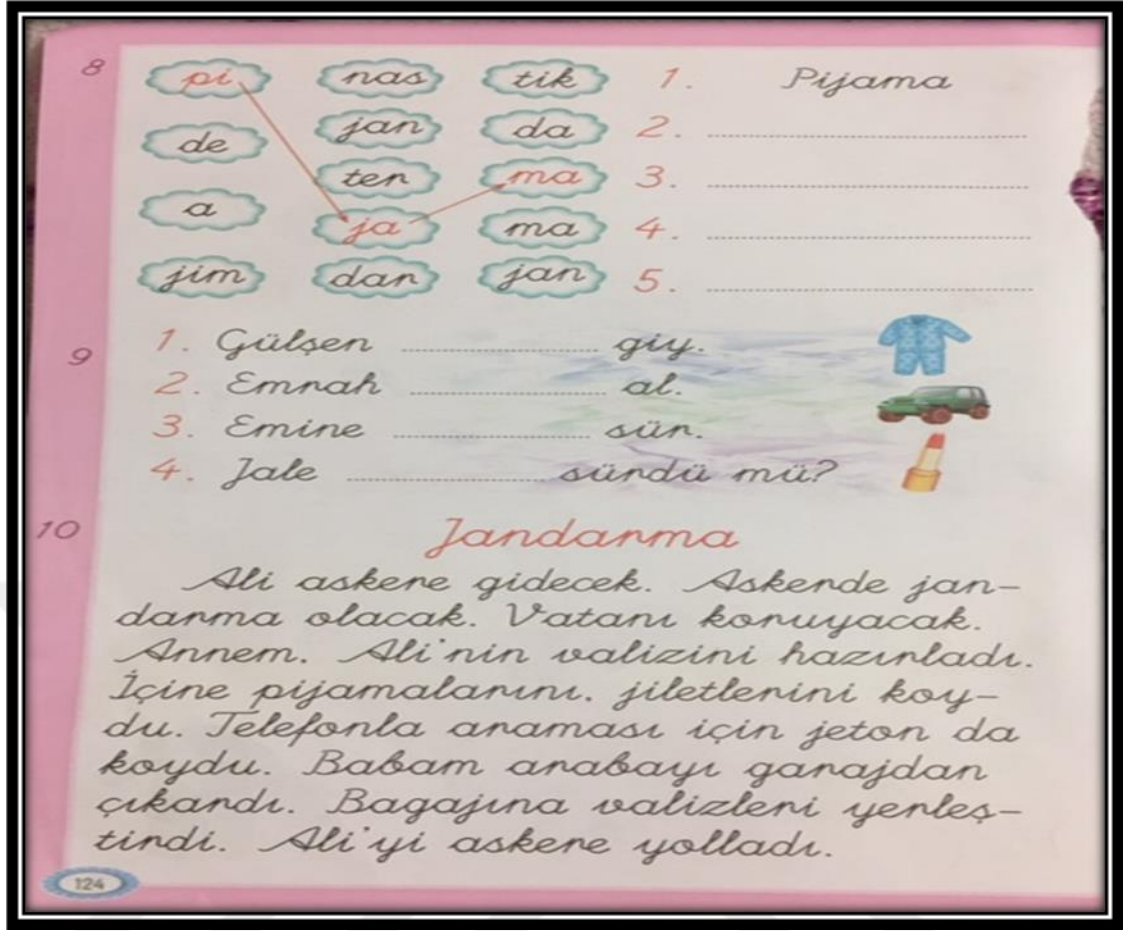 8
pi nas tik 1. Pijama
de jan da 2.
ten ma 3.
a ja ma 4.
jim dar jan 5.
9
1. Gülşen giy.
2. Emrah al.
3. Emine sür.
4. Jale sürdü mü?
10
Jandarma
Ali askere gidecek. Askerde jan-
darma olacak. Vatanı koruyacak.
Annem. Ali'nin valizini hazırladı.
İçine pijamalarını. jiletlerini koy-
du. Telefonla araması için jeton da
koydu. Babam arabayı garajdan
çıkardı. Bagajına valizleri yerleş-
tirdi. Ali'yi askere yolladı.
124